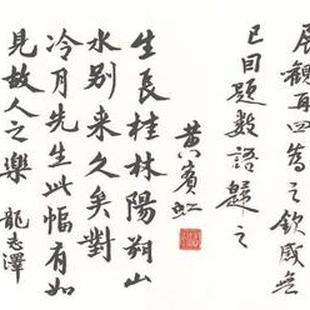 展觀再四為之欽感無
已因題數語歸之
黃賓虹
生長桂林陽朔山
水别来久矣對
冷月先生此幅有如
見故人之樂 龍志澤